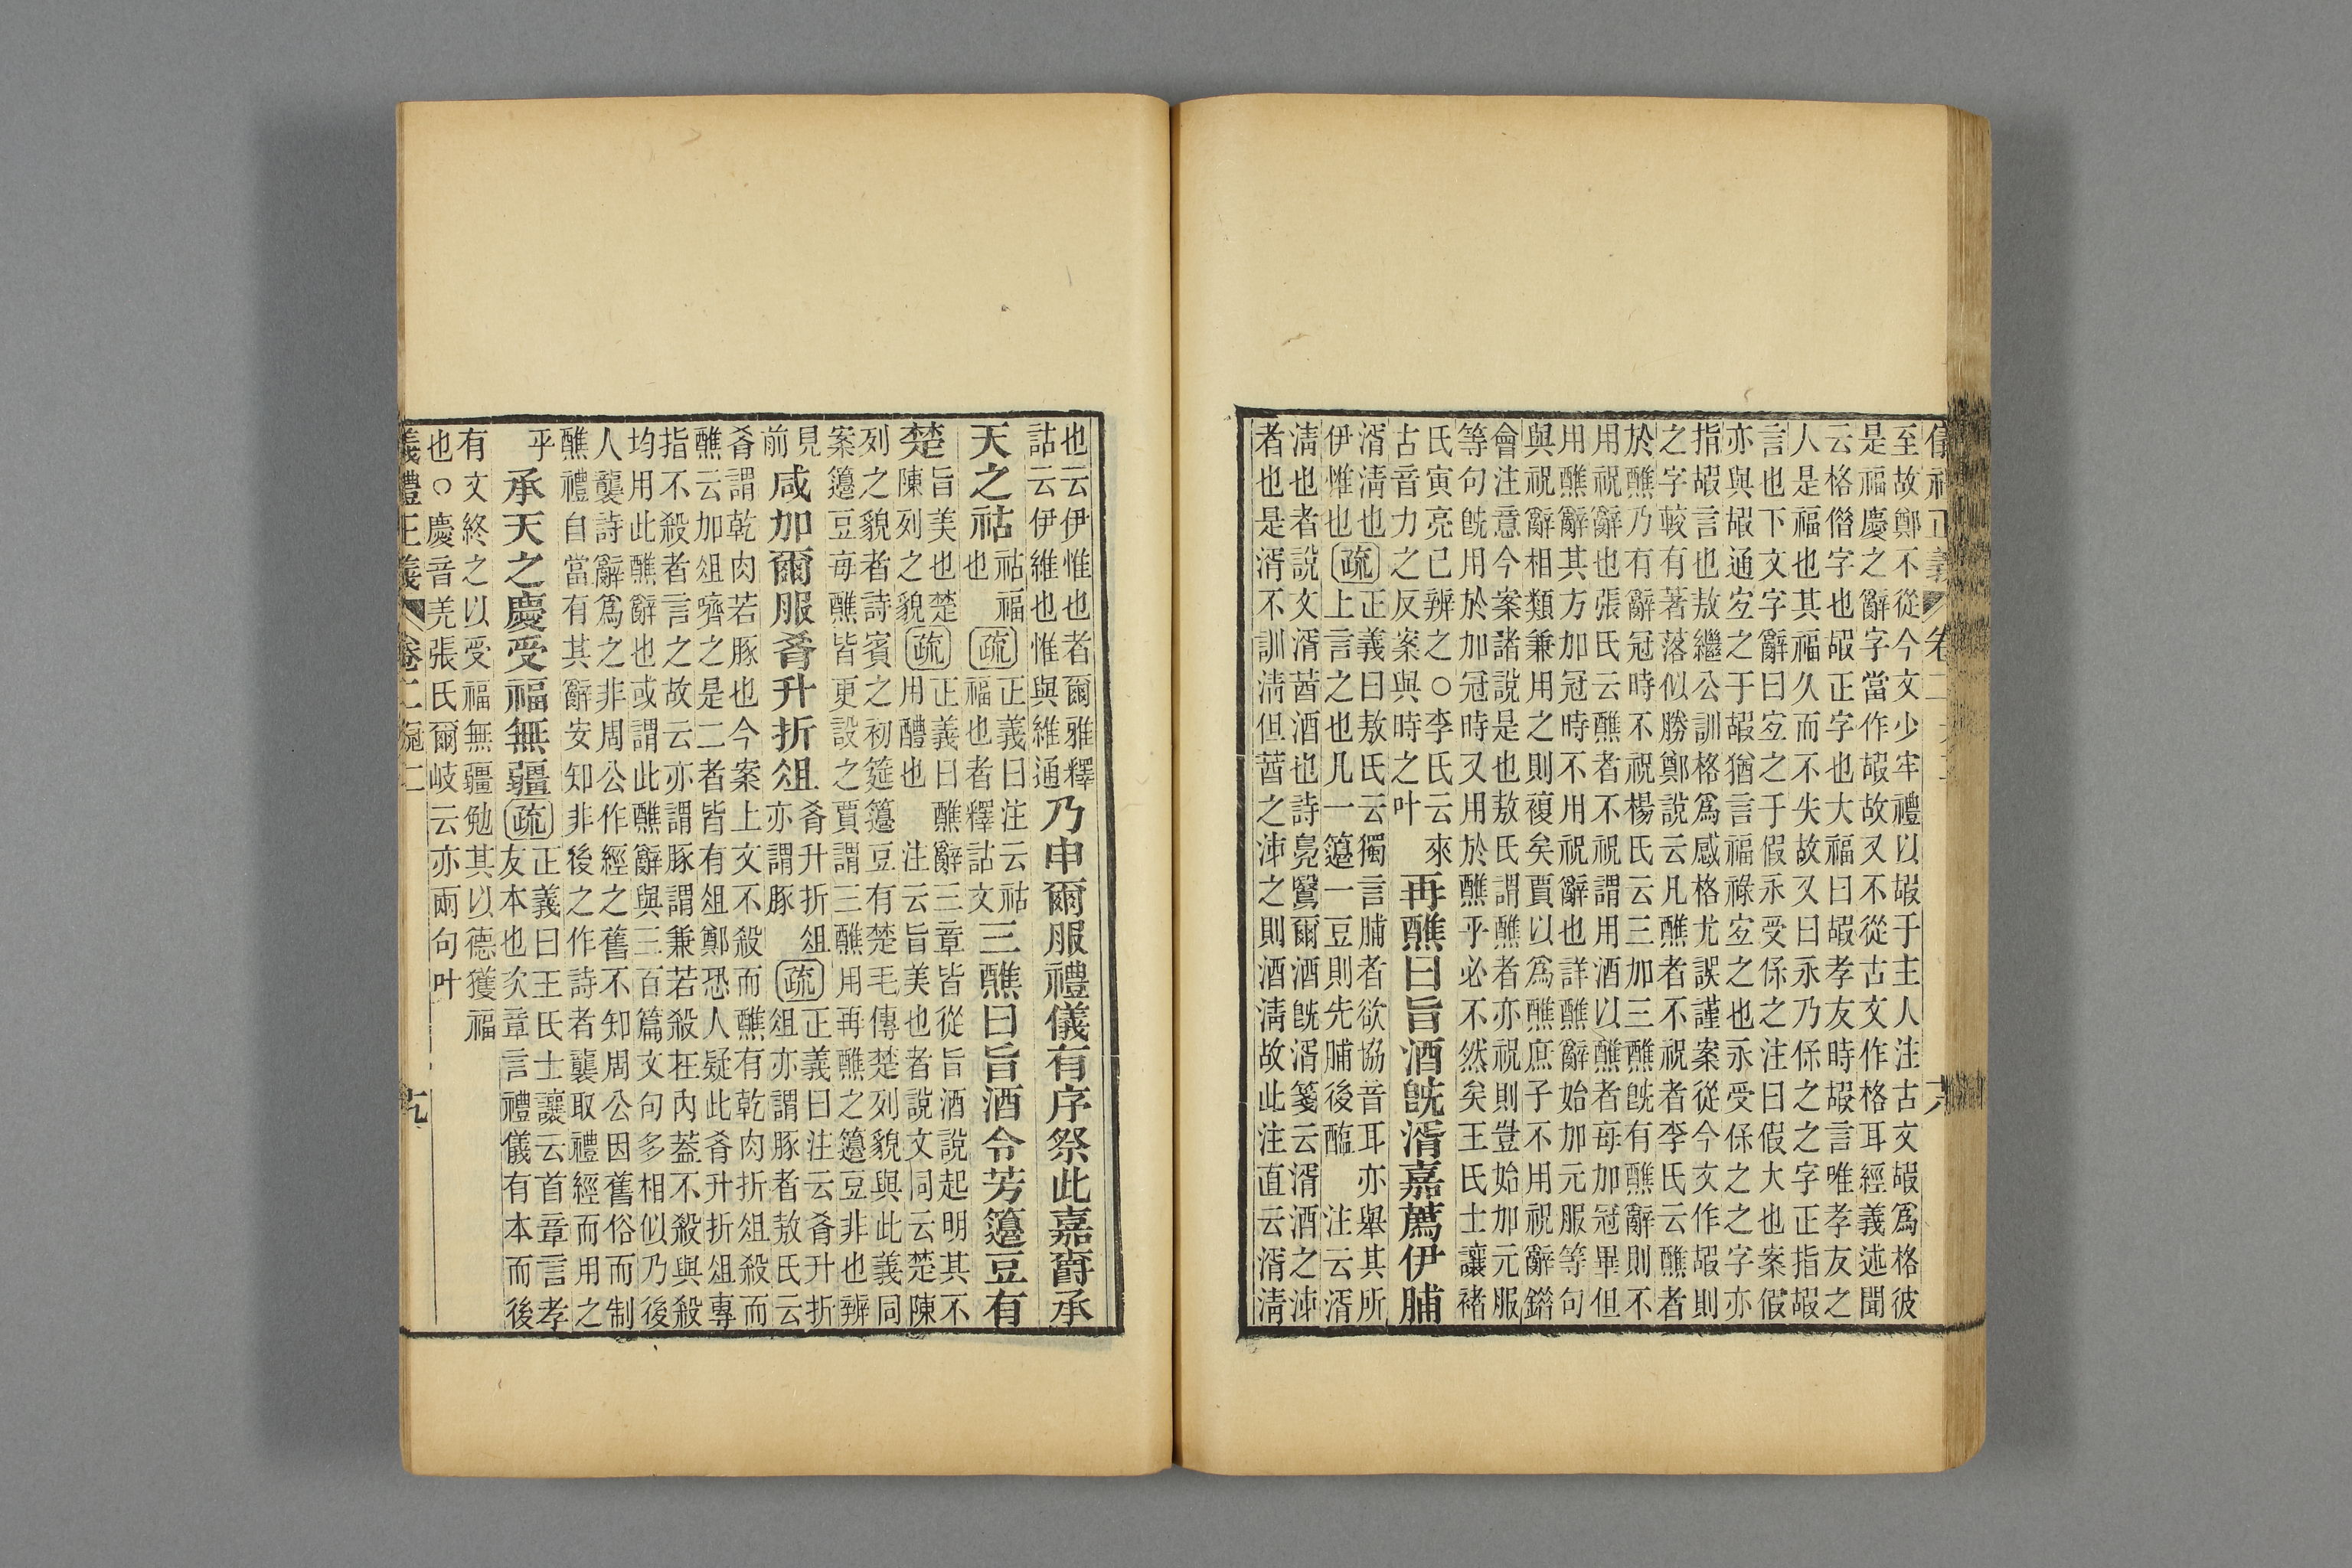 至故鄭不從今文少牢禮以嘏于主人注古文嘏爲格彼
是福慶之辭字當作嘏故又不從古文作格耳經義述聞
云格僭字也嘏正字也大福曰嘏孝友時嘏言唯孝友之
人是福也其福久而不失故又曰永乃保之之字正指嘏
言也下文字辭曰宐之于假永受保之注曰假大也案假
亦與嘏通宐之于嘏猶言福祿宐之也永受保之之字亦
指嘏言也敖繼公訓格爲感格尤誤謹案從今文作嘏則
之字較有著落似勝鄭說云凡醮者不祝者李氏云醮者
於醮乃有辭冠時不祝楊氏云三加三醮旣有醮辭則不
用祝辭也張氏云醮者不祝謂用酒以醮者每加冠畢但
用醮辭其方加冠時不用祝辭也詳醮辭始加元服等句
與祝辭相類兼用之則複矣賈以爲醮庶子不用祝辭鍇
會注意今案諸說是也敖氏謂醮者亦祝則豈始加元服
等句旣用於加冠時又用於醮乎必不然矣王氏士讓褚
氏寅亮已辨之○李氏云來
古音力之反案與時之叶
再醮曰旨酒旣湑嘉薦伊脯
湑淸也
伊惟也
疏
正義曰敖氏云獨言脯者欲協音耳亦舉其所
上言之也凡一籩一豆則先脯後醢 注云湑
淸也者說文湑莤酒也詩鳧鷖爾酒旣湑箋云湑酒之泲
者也是湑不訓淸但莤之泲之則酒淸故此注直云湑淸
也云伊惟也者爾雅釋
詁云伊維也惟與維通
乃申爾服禮儀有序祭此嘉爵承
天之祜
祜福
也
疏
正義曰注云祜
福也者釋詁文
三醮曰旨酒令芳籩豆有
楚
旨美也楚
陳列之貌
疏
正義曰醮辭三章皆從旨酒說起明其不
用醴也 注云旨美也者說文同云楚陳
列之貌者詩賓之初筵籩豆有楚毛傳楚列貌與此義同
案籩豆每醮皆更設之賈謂三醮用再醮之籩豆非也辨
見
前
咸加爾服肴升折俎
肴升折俎
亦謂豚
疏
正義曰注云肴升折
俎亦謂豚者敖氏云
肴謂乾肉若豚也今案上文不殺而醮有乾肉折俎殺而
醮云加俎嚌之是二者皆有俎鄭恐人疑此肴升折俎專
指不殺者言之故云亦謂豚謂兼若殺在內蓋不殺與殺
均用此醮辭也或謂此醮辭與三百篇文句多相似乃後
人襲詩辭爲之非周公作經之舊不知周公因舊俗而制
醮禮自當有其辭安知非後之作詩者襲取禮經而用之
乎
承天之慶受福無疆
疏
正義曰王氏士讓云首章言孝
友本也次章言禮儀有本而後
有文終之以受福無疆勉其以德獲福
也○慶音羌張氏爾岐云亦兩句叶